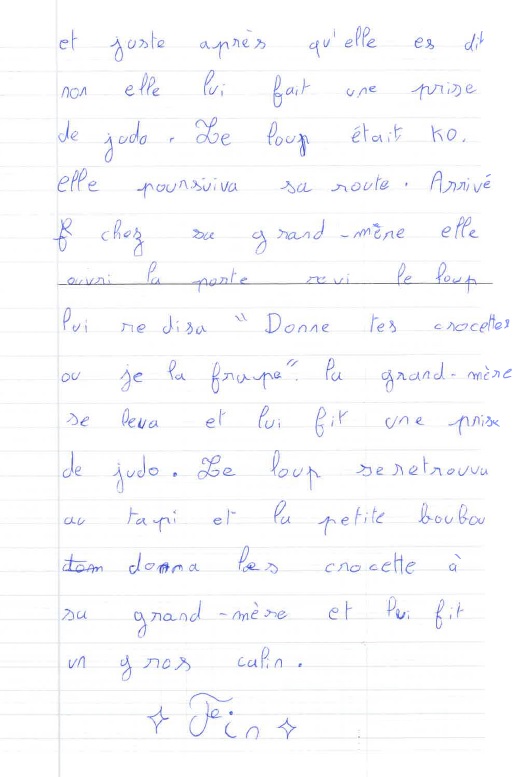 et juste après qu'elle es dit
non elle lui fait une prise
de judo. Le loup était KO.
elle poursuiva sa route. Arrivé
chez sa grand-mère elle
ouvri la porte revi le loup
lui re disa "Donne tes crocettes
ou je la frappe". la grand-mère
se leva et lui fit une prise
de judo. Le loup se retrouvu
au tapi et la petite boubou
donna les crocette à
sa grand-mère et lui fit
un gros calin.
Fin